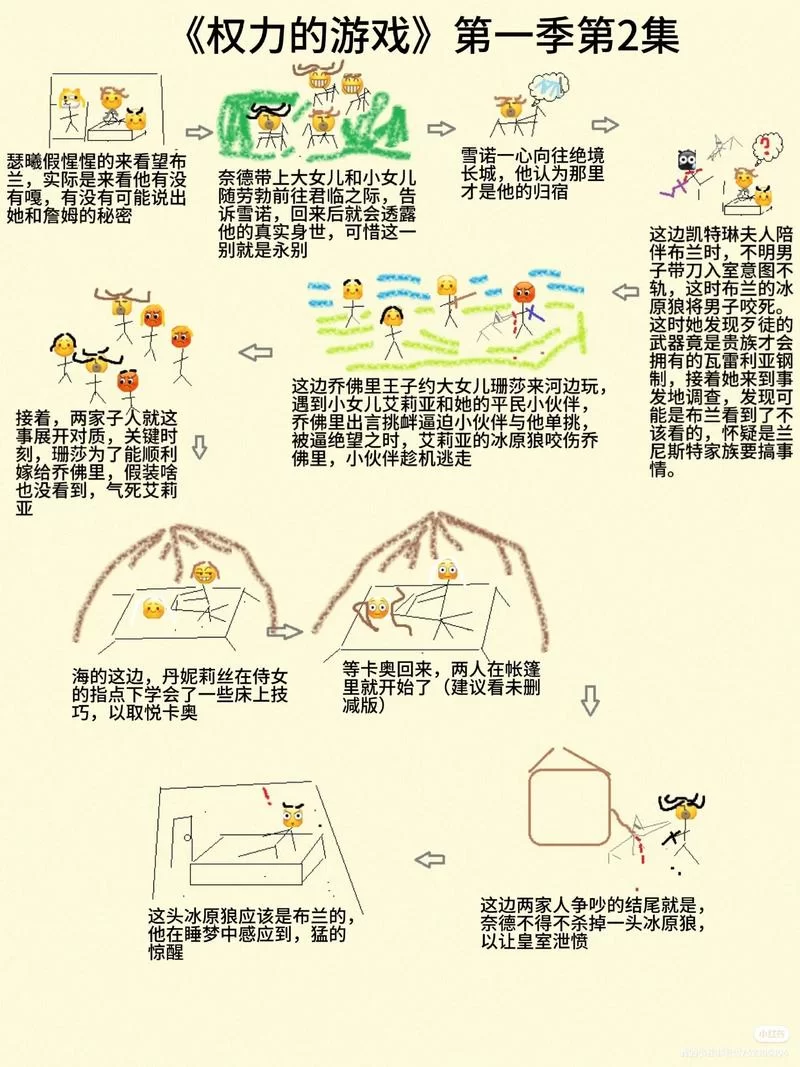 《权力的游戏》第一季第2集
瑟曦假惺惺的来看望布
兰，实际是来看他有没
有嘎，有没有可能说出
她和詹姆的秘密
奈德带上大女儿和小女儿
随劳勃前往君临之际，告
诉雪诺，回来后就会透露
他的真实身世，可惜这一
别就是永别
雪诺一心向往绝境
长城，他认为那里
才是他的归宿
?
这边凯特琳夫人陪
伴布兰时，不明男
子带刀入室意图不
轨，这时布兰的冰
原狼将男子咬死。
这时她发现歹徒的
武器竟是贵族才会
拥有的瓦雷利亚钢
制，接着她来到事
发地调查，发现可
能是布兰看到了不
该看的，怀疑是兰
尼斯特家族要搞事
情。
这边乔佛里王子约大女儿珊莎来河边玩，
遇到小女儿艾莉亚和她的平民小伙伴，
乔佛里出言挑衅逼迫小伙伴与他单挑，
被逼绝望之时，艾莉亚的冰原狼咬伤乔
佛里，小伙伴趁机逃走
接着，两家子人就这
事展开对质，关键时
刻，珊莎为了能顺利
嫁给乔佛里，假装啥
也没看到，气死艾莉
亚
海的这边，丹妮莉丝在侍女
的指点下学会了一些床上技
巧，以取悦卡奥
等卡奥回来，两人在帐篷
里就开始了（建议看未删
减版）
这边两家人争吵的结尾就是，
奈德不得不杀掉一头冰原狼，
以让皇室泄愤
!
这头冰原狼应该是布兰的，
他在睡梦中感应到，猛的
惊醒
小红书